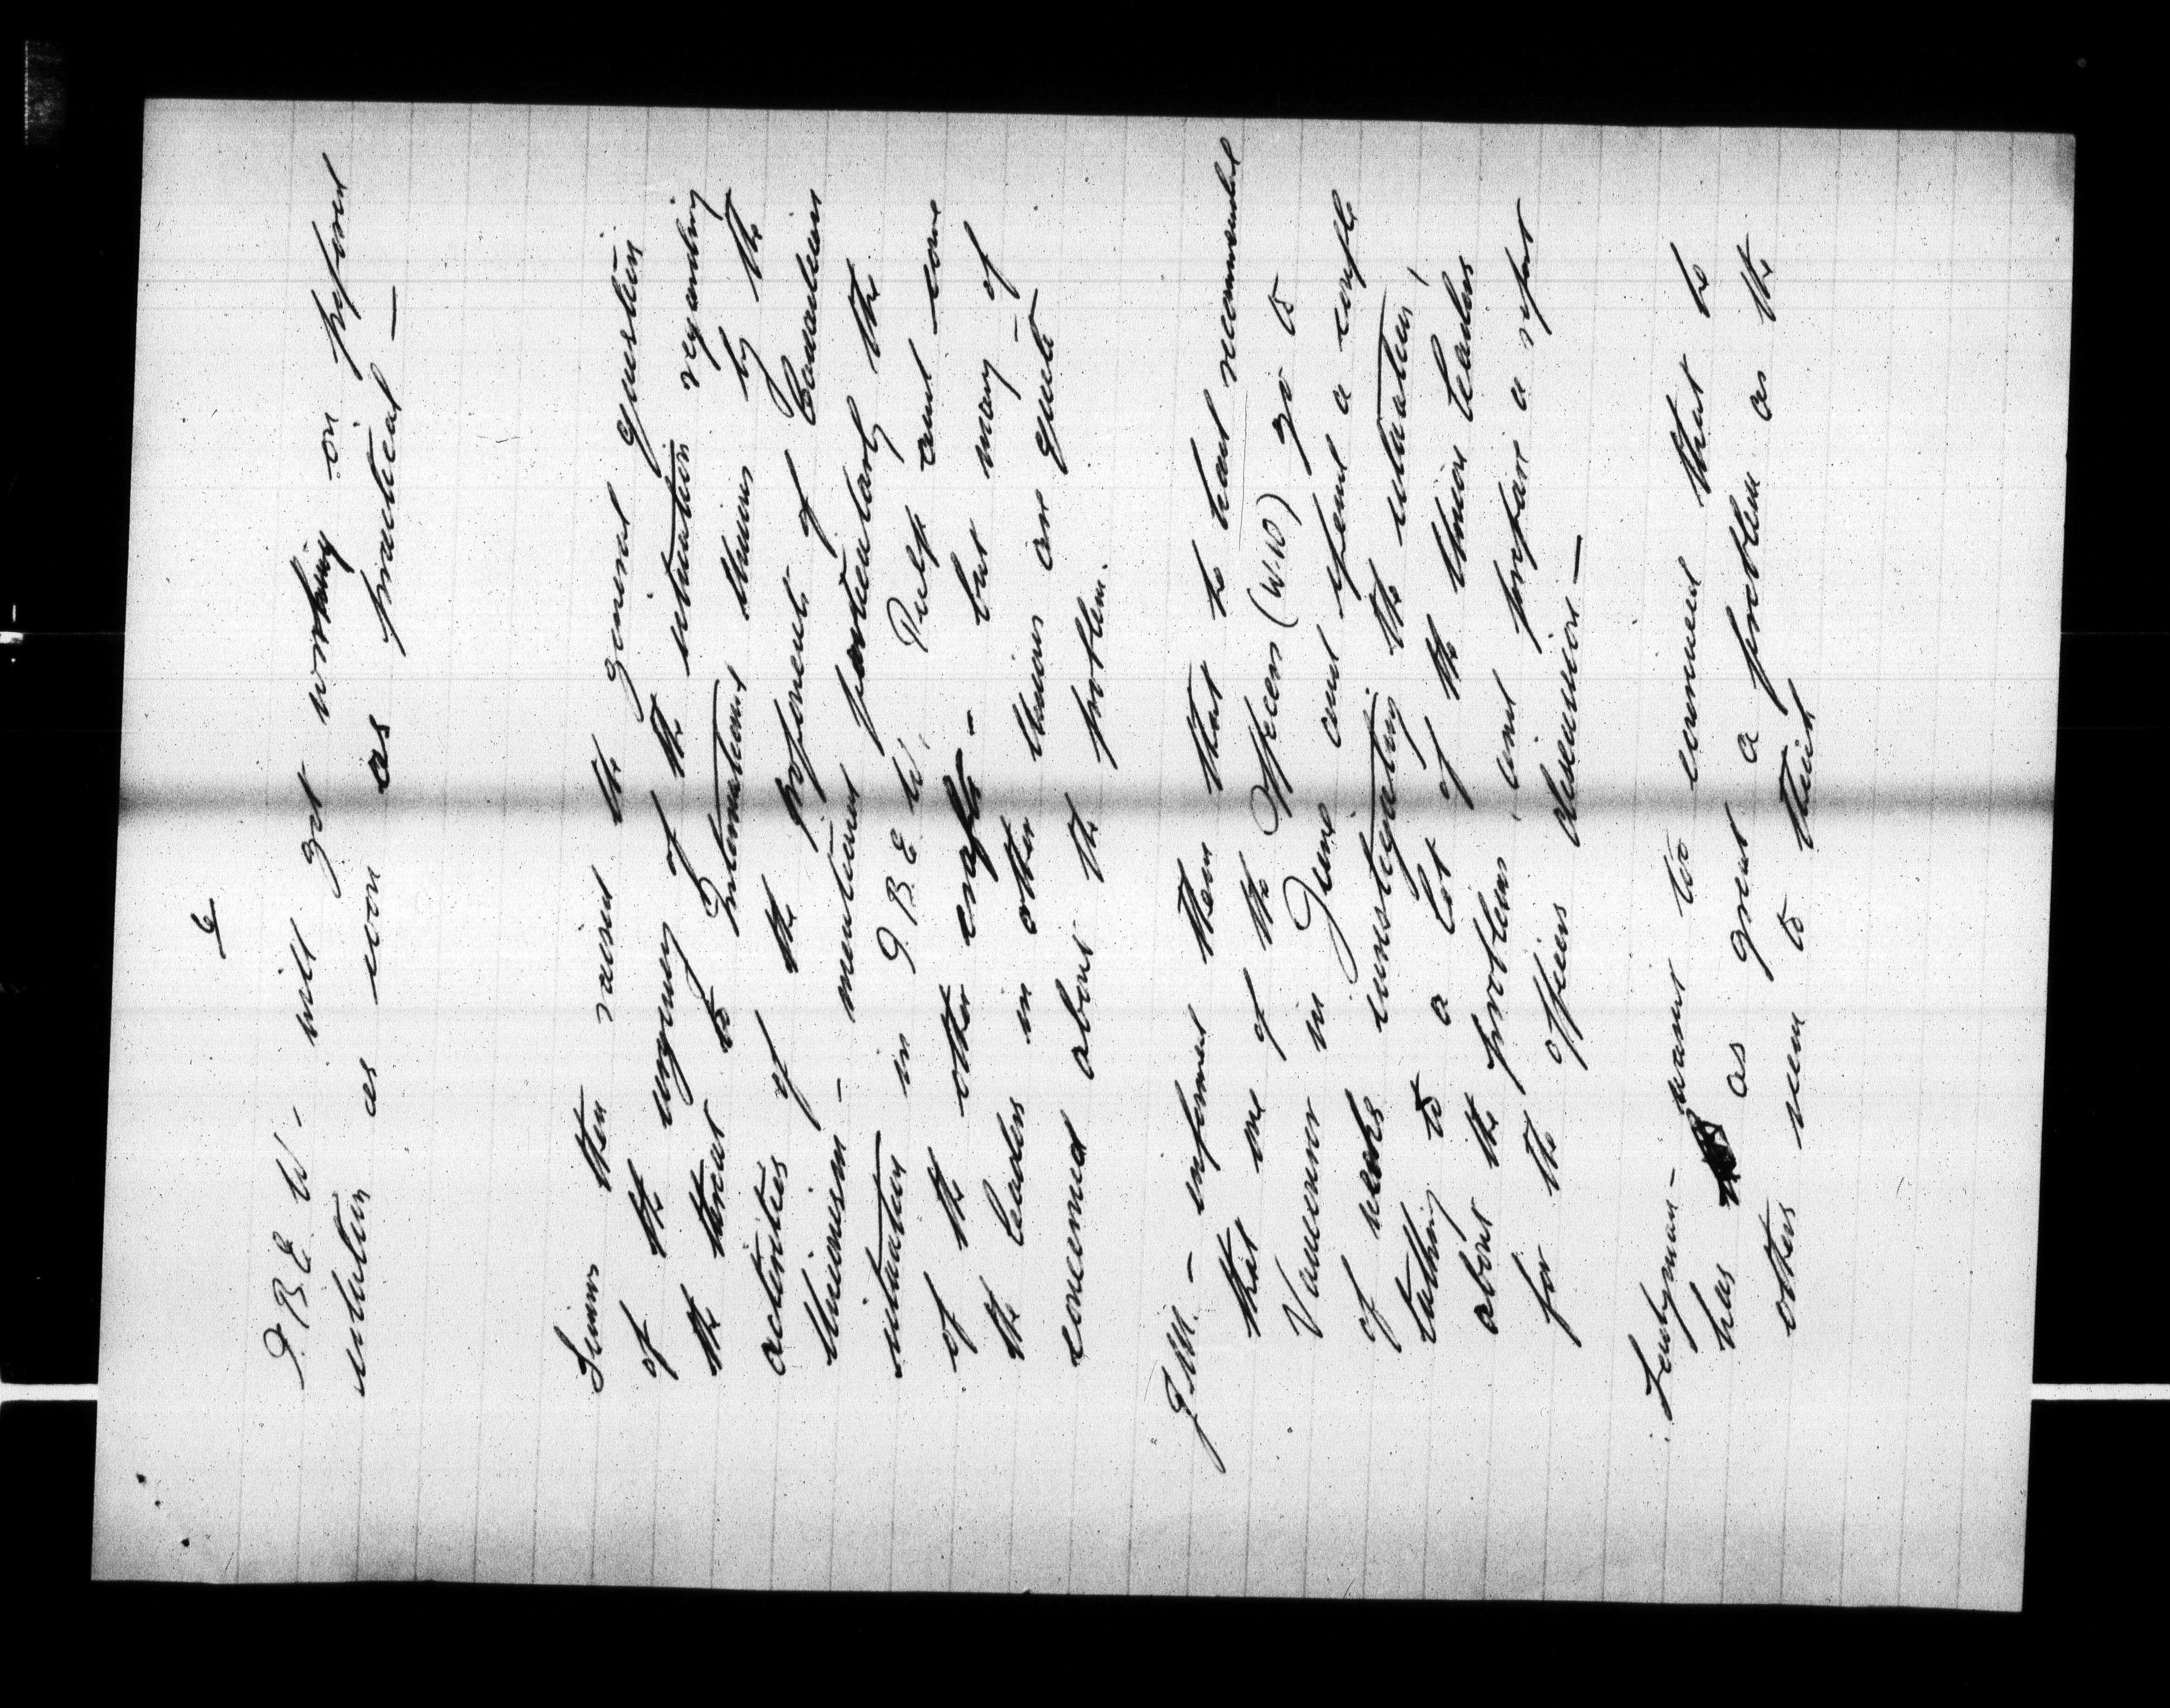 6
I.B.E.W. will get working on personal
solution as soon as practical —
Simms then raised the general question
of the urgency of the situation regarding
the threat to International Unions by the
activities of the proponents of Canadian
Unionism - mentioned particularly the
situation in I.B.E.W. Pulp and some
of the other crafts - but many of
the leaders in other Unions are quite
concerned about the problem.
- informed them that he had recommended
that one of the Officers (W.W.) go to
Vancouver in June and spend a couple
of weeks investigating the situation,
talking to a lot of the Union leaders
about the problems and prepare a report
for the officers discussion —
Ladyman - want to commend that he
has as great a problem as the
others seem to think